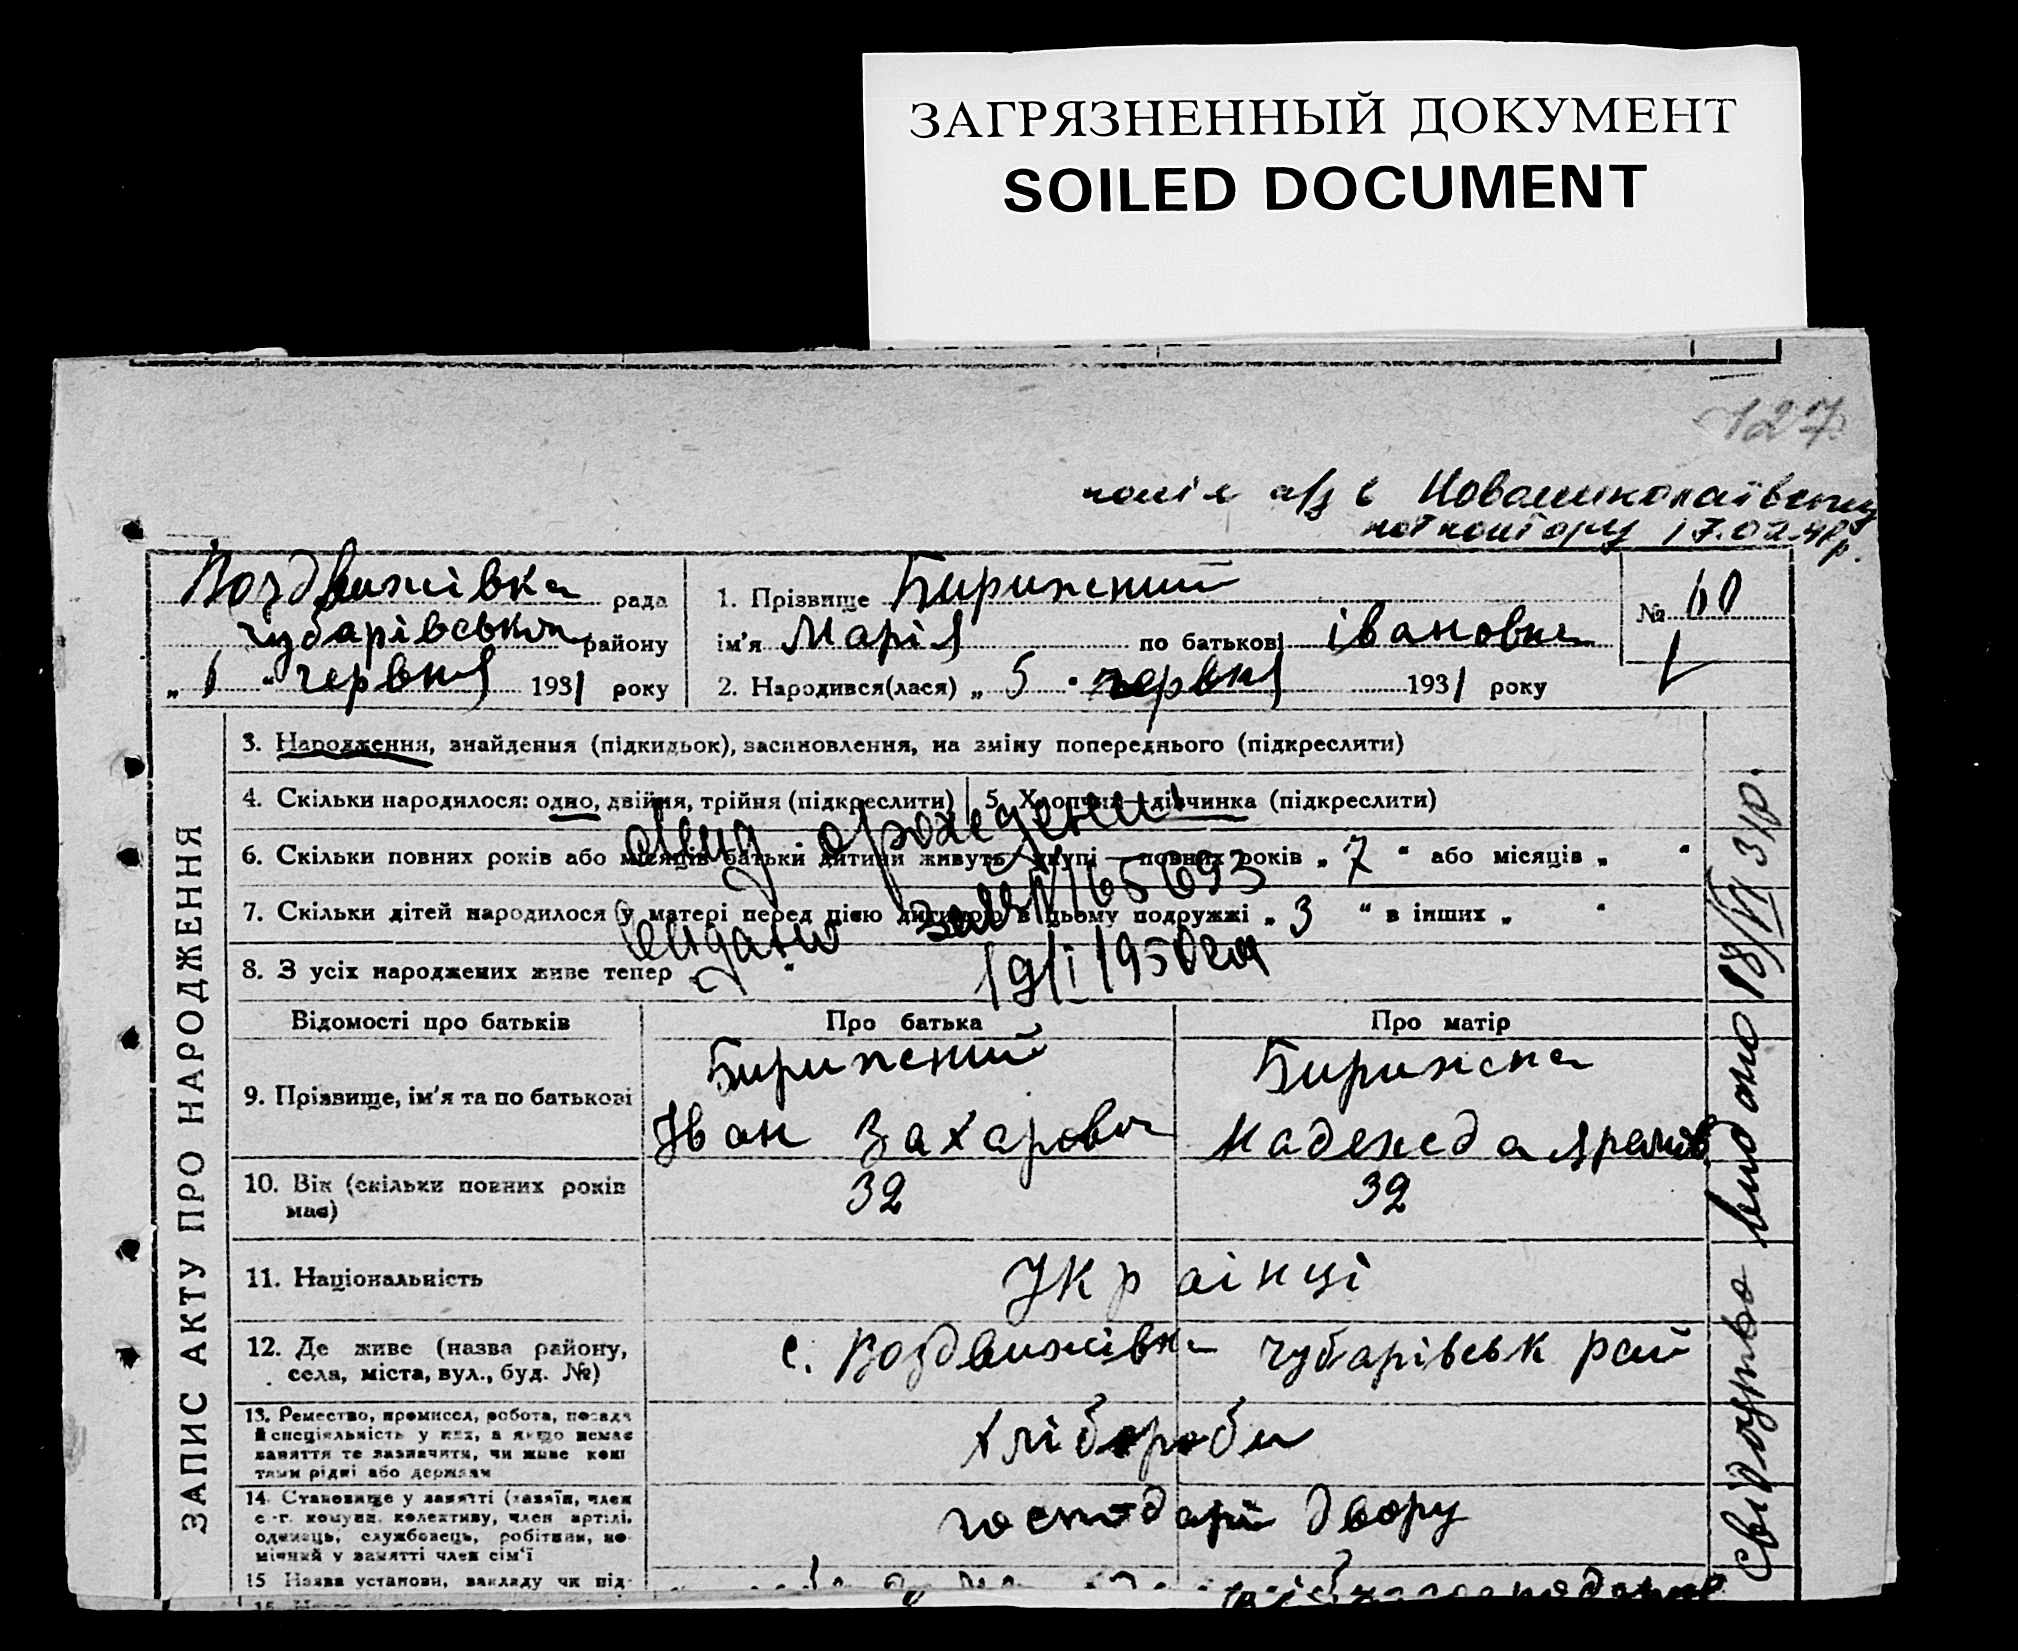 ЗАГРЯЗНЕННЫЙ ДОКУМЕНТ
SOILED DOCUMENT
127
Новомиколаївську
нотконтору 17.02
Воздвижівка рада
Чубарівського району
„ 6 " червня 1931 року
1. Прізвище Бирижський
ім'я Марія по батькові Івановна
2. Народився(лася) „ 5 " червня 1931 року
№ 60
ЗАПИС АКТУ ПРО НАРОДЖЕННЯ
3. Народження, знайдення (підкидьок), засиновлення, на зміну попереднього (підкреслити)
4. Скільки народилося: одно, двійня, трійня (підкреслити)
5. Хлопчик—дівчинка (підкреслити)
6. Скільки повних років або місяців батьки дитини живуть вкупі — повних років „ 7 " або місяців „ "
7. Скільки дітей народилося у матері перед цією дитиною в цьому подружжі „ 3 " в інших „ "
8. З усіх народжених живе тепер
о рождении
165693
19/I 1950
Відомості про батьків
Про батька
Про матір
9. Прізвище, ім'я та по батькові
Бирижский
Іван Захарович
Бирижська
Надежда
10. Вік (скільки повних років має)
32
32
11. Національність
Українці
12. Де живе (назва району, села, міста, вул., буд. №)
с. Воздвижівка Чубарівськ рай
13. Ремество, промисел, робота, посада й спеціяльність у них, а якщо немає заняття те зазначити, чи живе коштами рідні або держави
хлібороби
14. Становище у занятті (хазяїн, член с.-г. комуни, колективу, член артілі, одинець, службовець, робітник, помічний у занятті член сім'ї
господарі двору
15 Назва установи, закладу чи під-
Свідоцтво видано 18/VI 31р.